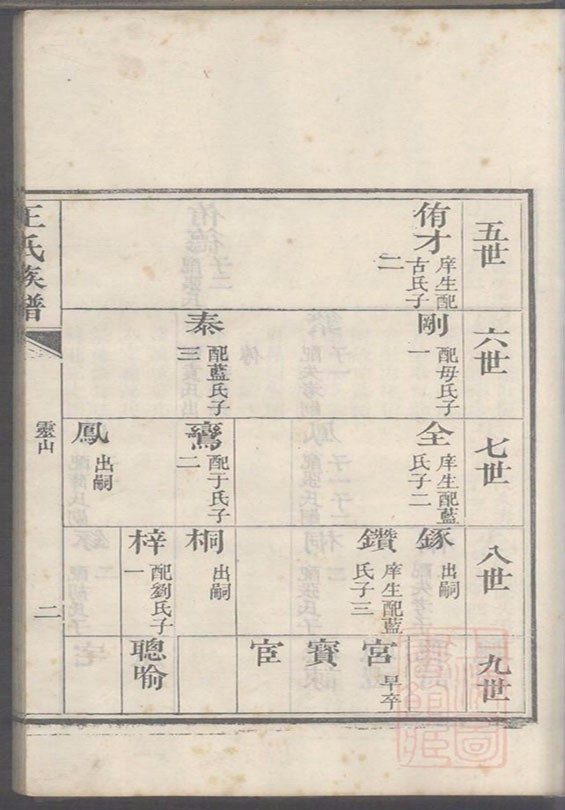 五世
侑才
庠生配
古氏子
二
六世
剛
配毋氏子
一
泰
配藍氏子
三
七世
全
庠生配藍
氏子二
鸞
配于氏子
二
鳳
出嗣
八世
出嗣
鑽
庠生配藍
氏子三
桐
出嗣
梓
配劉氏子
一
九世
宮
早卒
寳
宦
聰喻
王氏族譜
靈山
二